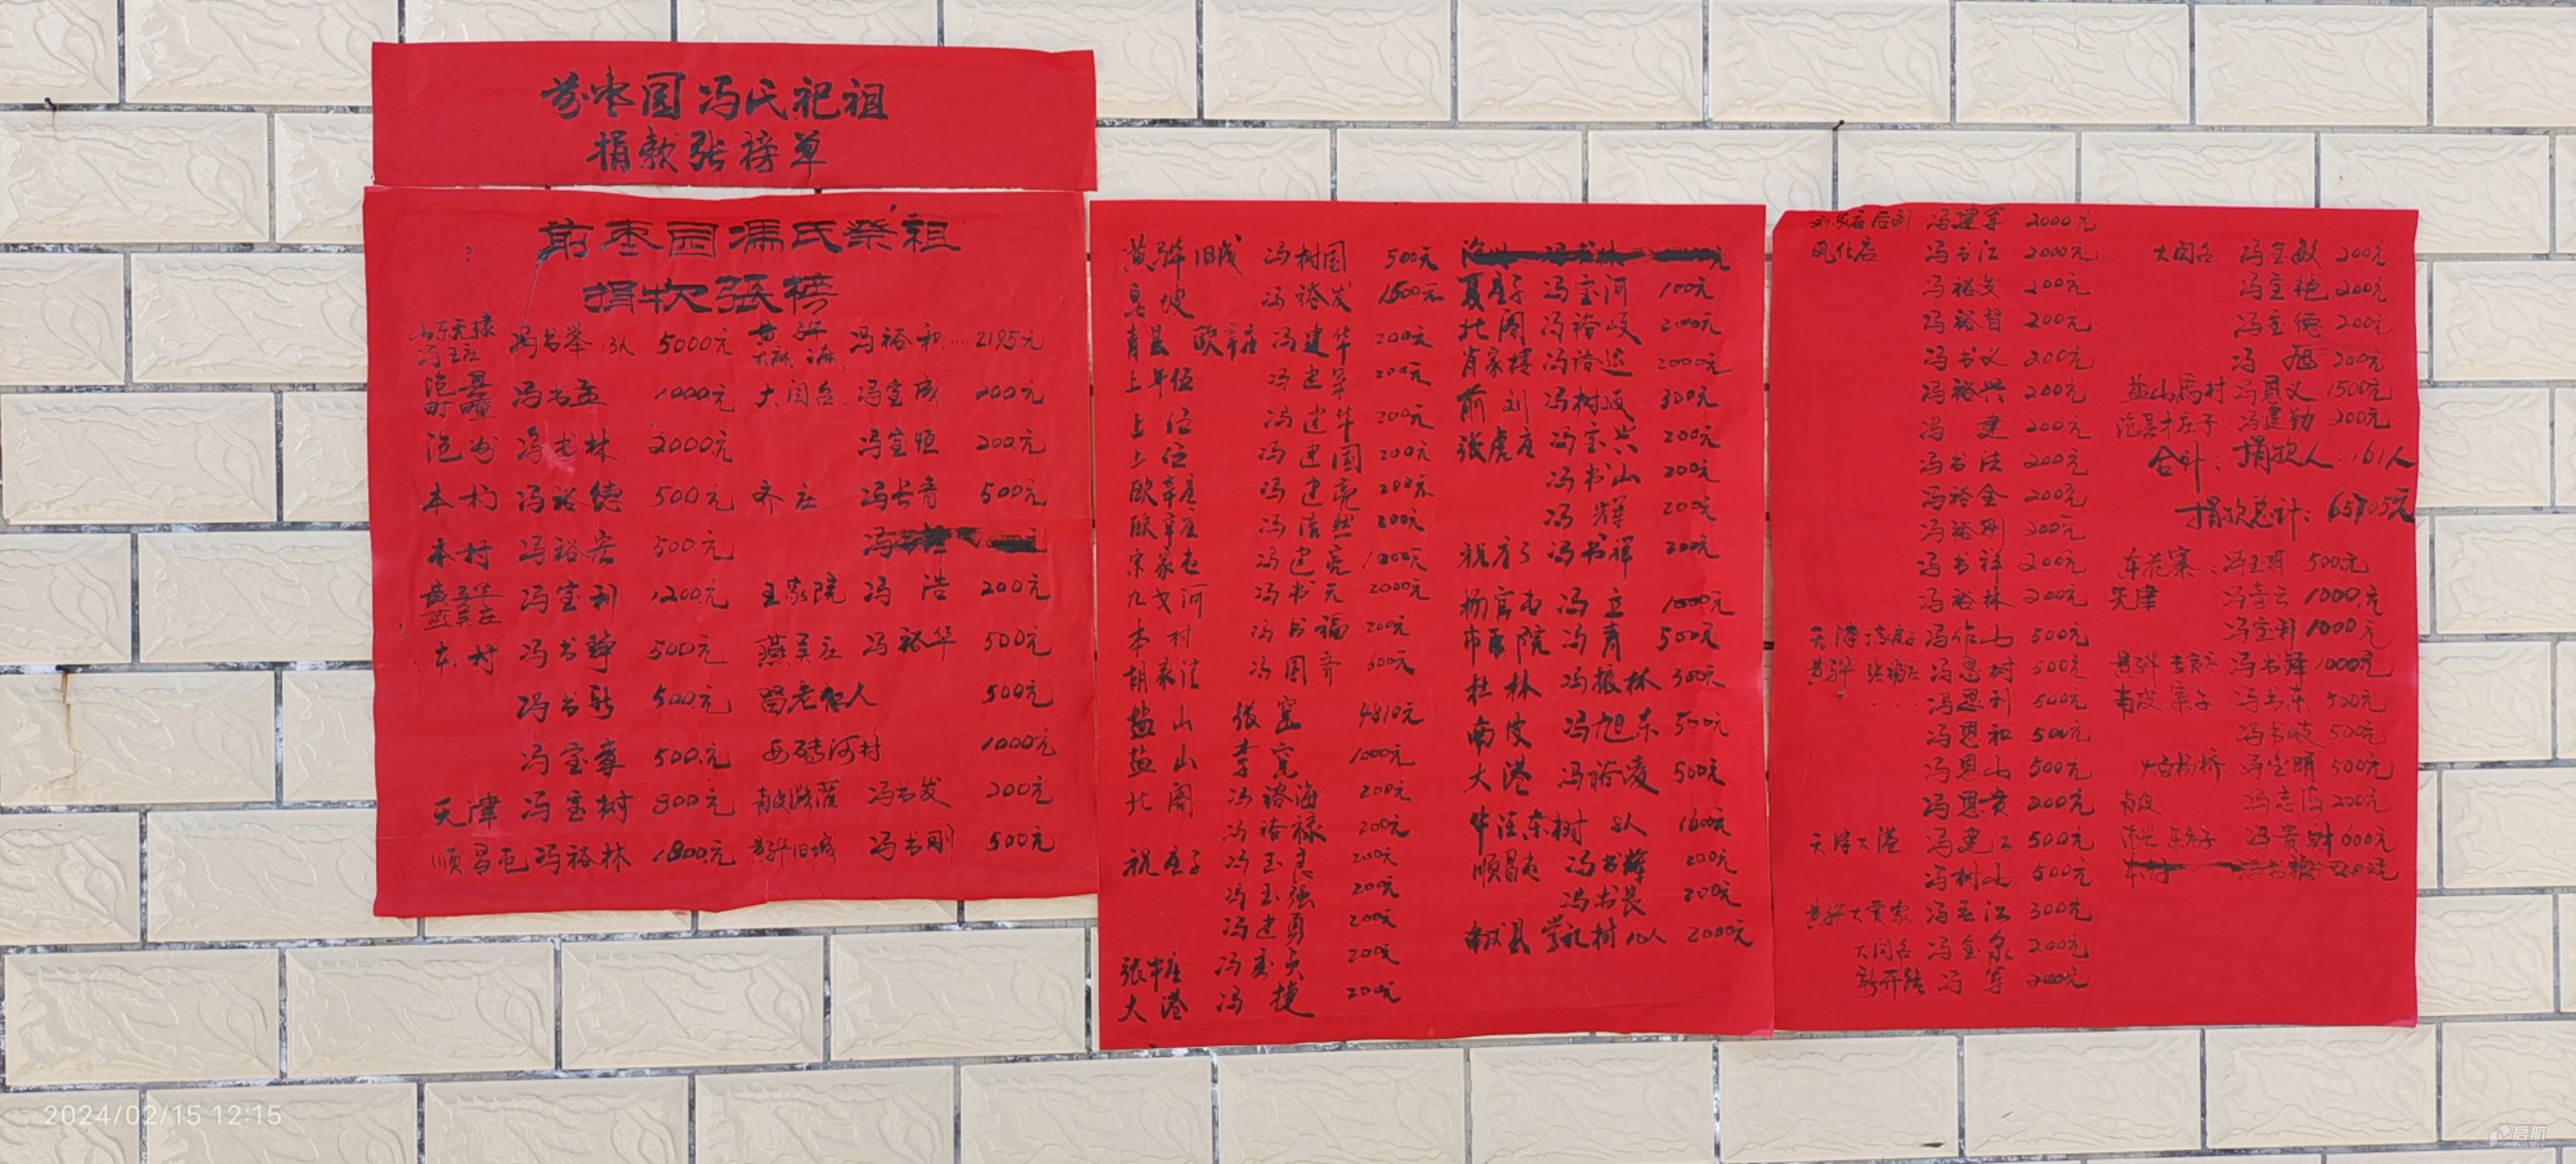 前枣园冯氏祀祖
捐款张榜单
前枣园冯氏祭祖
捐款張榜
山东无棣
冯王庄 冯书举 13人 5000元
冯书孟 1000元
沧州 冯书林 2000元
本村 冯裕德 500元
本村 冯裕宏 500元
黄骅
燕吴庄 冯宝利 1200元
本村 冯书静 500元
冯书新 500元
冯宝章 500元
天津 冯宝树 800元
顺昌屯 冯裕林 1800元
黄骅 冯裕和 2195元
大闫台 冯宝成 200元
冯宝恒 200元
齐庄 冯长青 500元
王家院 冯浩 200元
燕吴庄 冯裕华 500元
500元
河村 1000元
冯书发 200元
黄骅旧城 冯书刚 500元
黄骅旧城 冯树国 500元
冯裕发 1500元
青县 欧辛庄 冯建华 200元
上伍 冯建军 200元
上伍 冯建华 200元
上伍 冯建国 200元
欧辛庄 冯建亮 200元
欧辛庄 冯浩然 200元
宋家屯 冯建亮 1000元
九戈河 冯书元 2000元
本村 冯书福 200元
胡家洼 冯国齐 600元
盐山 张窑 4810元
盐山 李 1000元
北阁 冯裕海 200元
冯裕禄 200元
祝庄子 冯玉良 200元
冯玉强 200元
冯建勇 200元
冯 200元
大港 冯捷 200元
夏庄子 冯宝河 100元
北阁 冯裕岐 2000元
肖家楼 冯裕运 2000元
前刘 冯树 300元
张虎庄 冯宝兴 200元
冯书山 200元
冯辉 200元
祝庄子 冯书祥 200元
杨官屯 冯立 1000元
市医院 冯青 500元
杜林 冯振林 300元
南皮 冯旭东 500元
大港 冯裕凌 500元
华洼东树 8人 1600元
顺昌屯 冯书辉 200元
冯书晨 200元
献县 树10人 2000元
刘家店后刘 冯建军 2000元
风化店 冯书江 2000元
冯裕友 200元
冯裕督 200元
冯书义 200元
冯裕兴 200元
冯建 200元
冯书法 200元
冯裕全 200元
冯裕刚 200元
冯书祥 200元
冯裕林 200元
天津 冯作山 500元
黄骅 冯恩树 500元
冯恩利 500元
冯恩和 500元
冯恩山 500元
冯恩贵 200元
天津大港 冯建江 500元
冯树山 500元
黄骅大贾家 冯玉江 300元
大闫台 冯宝泉 200元
新开路 冯军 200元
大闫台 冯宝敏 200元
冯宝艳 200元
冯宝德 200元
冯旭 200元
盐山马村 冯恩义 1500元
冯建勤 200元
合计：捐款人：161人
捐款总计：65705元
车花寨：冯玉明 500元
天津 冯奇云 1000元
冯宝利 1000元
黄骅 冯书铎 1000元
南皮 寨子 冯书东 500元
冯书岐 500元
杨桥 冯宝明 500元
南皮 冯志 200元
冯贵财 600元
2024/02/15 12:15
启航